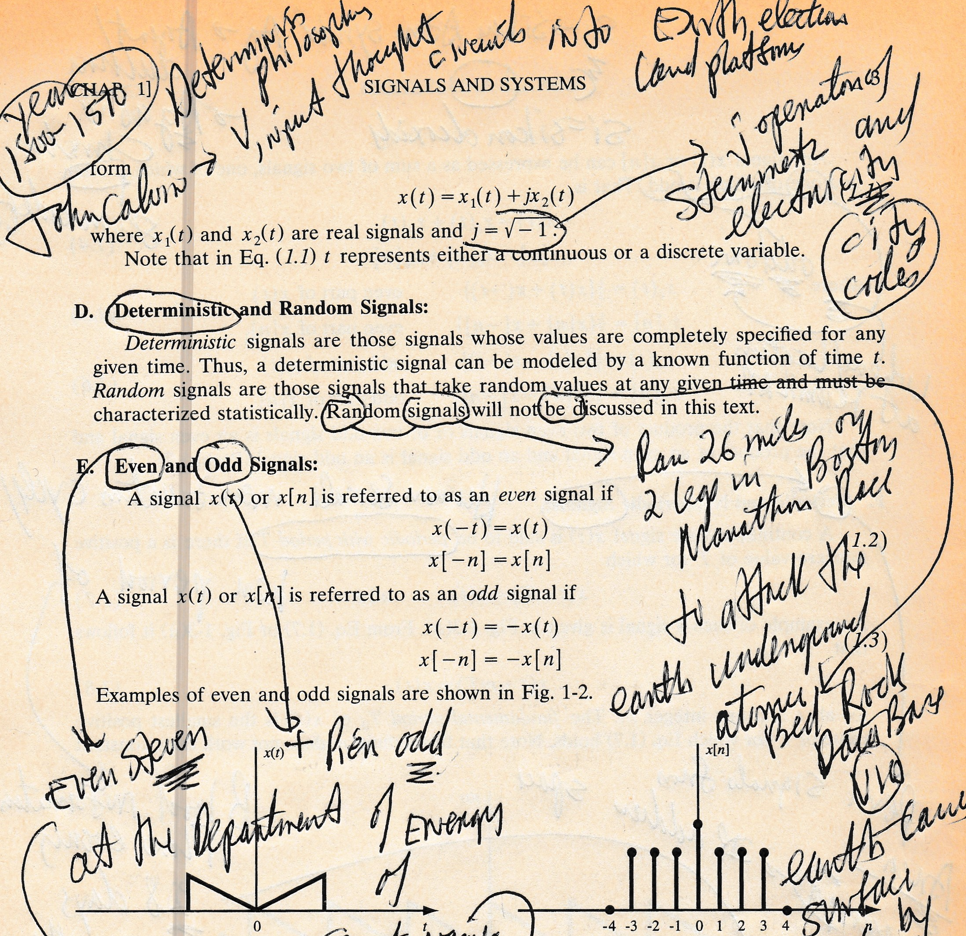 Determinis philosophy
Earth election
year
1500-1570
CHAP. 1]
V, input thought circuits into
land platform
SIGNALS AND SYSTEMS
John Calvin
j operator of
Steinmetz and
electricity
city
codes
form
x(t) = x₁(t) + jx₂(t)
where x₁(t) and x₂(t) are real signals and j = √−1.
Note that in Eq. (1.1) t represents either a continuous or a discrete variable.
D. Deterministic and Random Signals:
Deterministic signals are those signals whose values are completely specified for any
given time. Thus, a deterministic signal can be modeled by a known function of time t.
Random signals are those signals that take random values at any given time and must be
characterized statistically. Random signals will not be discussed in this text.
Ran 26 miles on
2 legs in Boston
Marathon Race
E. Even and Odd Signals:
A signal x(t) or x[n] is referred to as an even signal if
x(−t) = x(t)
x[−n] = x[n]
(1.2)
to attack the
earth underground
atomic
Bed Rock
Data Base
via
earth
surface
by
A signal x(t) or x[n] is referred to as an odd signal if
x(−t) = −x(t)
x[−n] = −x[n]
(1.3)
Examples of even and odd signals are shown in Fig. 1-2.
Even Steven
+ Pien odd
at the Department of Energy
of
x(t)
0
x[n]
-4 -3 -2 -1 0 1 2 3 4
n